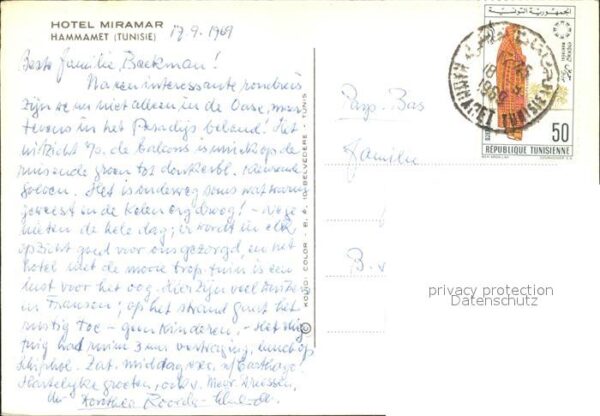 HOTEL MIRAMAR
HAMMAMET (TUNISIE)
17.9.1969
Beste Familie, Beekman!
Na een interessante rondreis
zijn we nu niet alleen in de Oase, maar
tevens in het Paradijs beland! Het
uitzicht v/d. balcons is uniek op de
ruisende groen tot donkerbl.
golven. Het is onderweg soms wat warm
geweest en de kelen erg droog! We ge-
nieten de hele dag; er wordt in elk
opzicht goed voor ons gezorgd, en het
hotel met de mooie trop. tuin is een
lust voor het oog. Hier zijn veel
en Fransen; op het strand gaat het
rustig toe - geen kinderen. - Het
tuig had ruim 3 uur vertraging, lunch op
Schiphol. Zat. middag exc. n/ Carthago.
Hartelijke groeten, ook v. Mevr.
Dorothea Roorda
KOLOGI COLOR - B. A. 10-BELVEDERE - TUNIS
Pays-Bas
Familie
B.v
الجمهورية التونسية
50
REPUBLIQUE TUNISIENNE
HAMMAMET TUNISIE
1969
privacy protection
Datenschutz